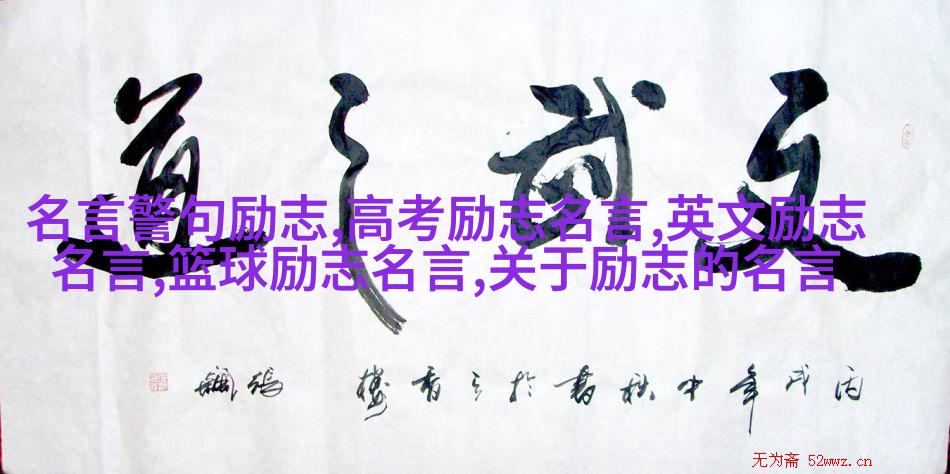 文武之道
名言警句励志,高考励志名言,英文励志
名言,篮球励志名言,关于励志的名言
丙戌年中秋書於
无为斋 52wwz.cn